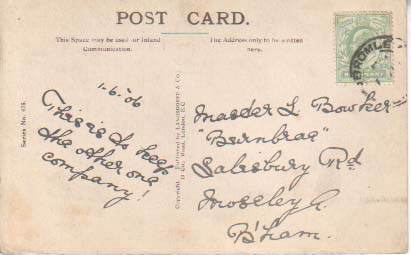 POST CARD.
This Space may be used for Inland
Communication.
The Address only to be written
here.
BROMLEY
1-6-06
This is to keep
the other one
company!
Master L. Bowker
"Burnbrae"
Salesbury Rd
Moseley
B'ham.
Series No.
Copyright.
Published by
London, E.C.